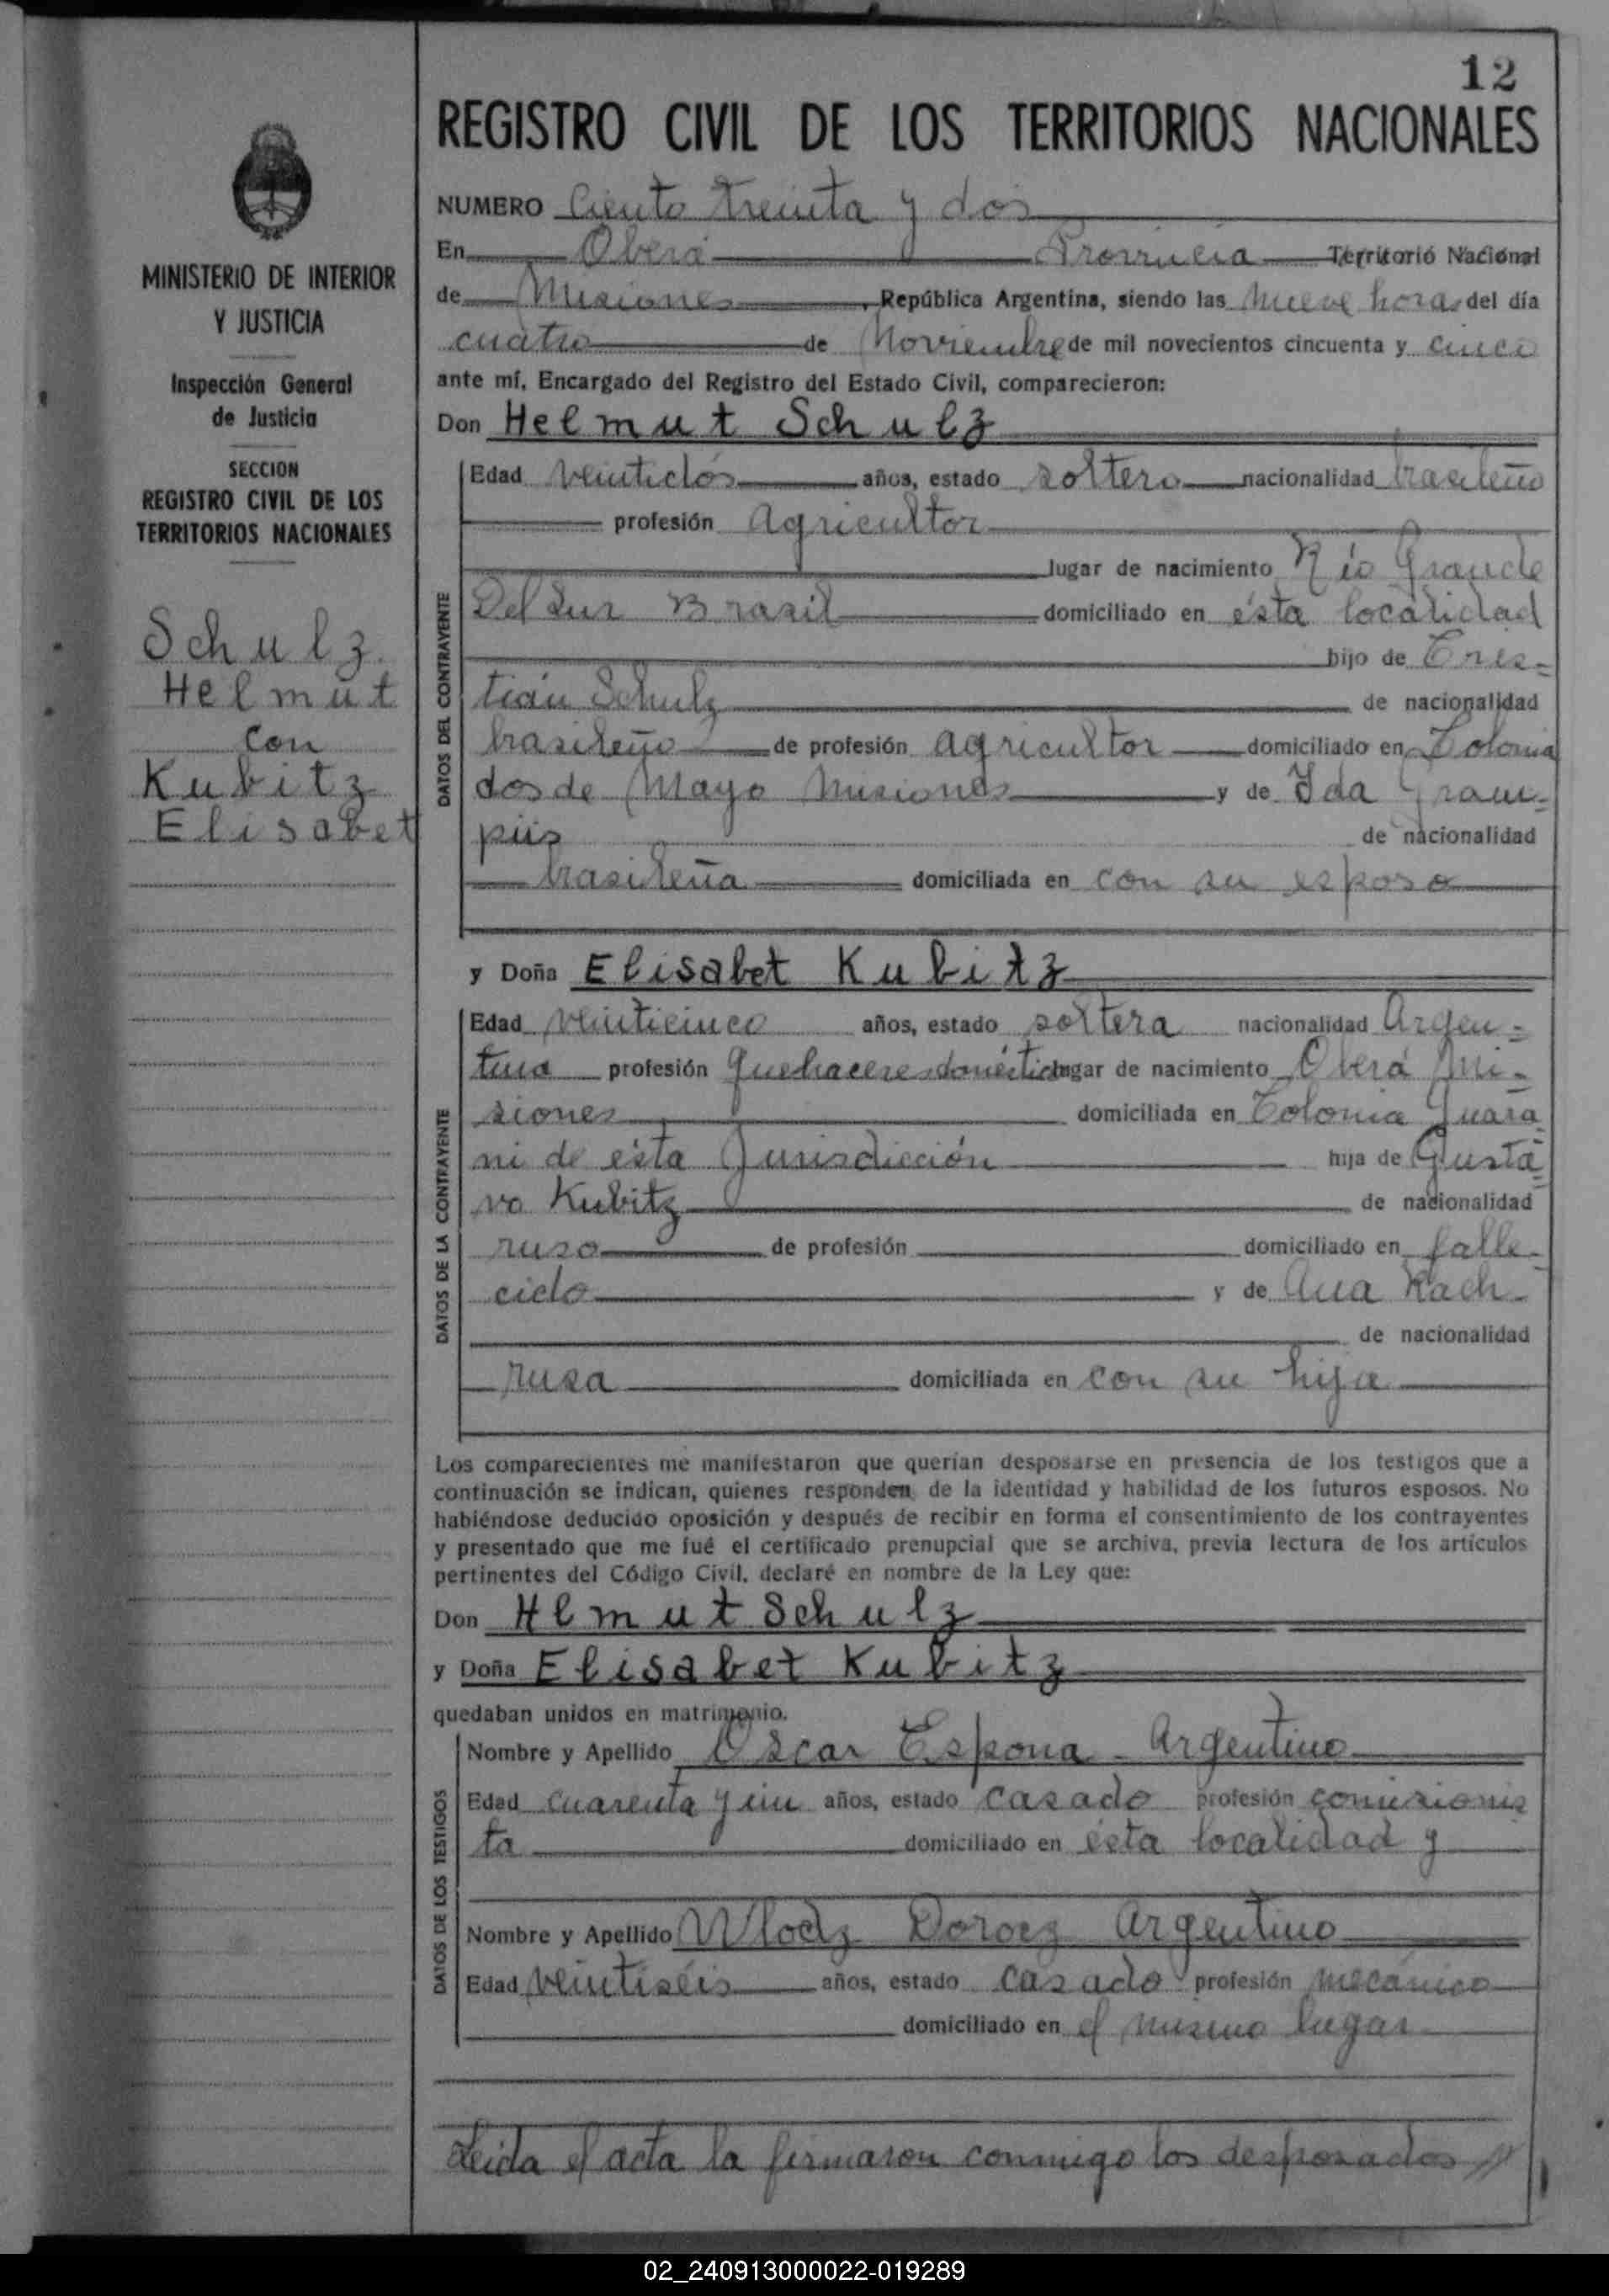 12
REGISTRO CIVIL DE LOS TERRITORIOS NACIONALES
MINISTERIO DE INTERIOR
Y JUSTICIA
Inspección General
de Justicia
SECCION
REGISTRO CIVIL DE LOS
TERRITORIOS NACIONALES
Schulz
Helmut
con
Kubitz
Elisabet
NUMERO Ciento treinta y dos
En Oberá Provincia Territorio Nacional
de Misiones, República Argentina, siendo las nueve horas del día
cuatro de Noviembre de mil novecientos cincuenta y cinco
ante mí, Encargado del Registro del Estado Civil, comparecieron:
Don Helmut Schulz
DATOS DEL CONTRAYENTE
Edad veintidós años, estado soltero nacionalidad brasileño
profesión agricultor
lugar de nacimiento Río Grande
Del Sur Brasil domiciliado en ésta localidad
hijo de Cris=
tián Schulz de nacionalidad
brasileño de profesión agricultor domiciliado en Colonia
dos de Mayo Misiones y de Ida Gram=
piis de nacionalidad
brasileña domiciliada en con su esposo
y Doña Elisabet Kubitz
DATOS DE LA CONTRAYENTE
Edad veinticinco años, estado soltera nacionalidad Argen=
tina profesión quehaceres domésticos lugar de nacimiento Oberá Mi=
siones domiciliada en Colonia Guara=
ni de ésta Jurisdicción hija de Gusta=
vo Kubitz de nacionalidad
ruso de profesión domiciliado en falle=
cido y de Ana Rach
de nacionalidad
rusa domiciliada en con su hija
Los comparecientes me manifestaron que querían desposarse en presencia de los testigos que a
continuación se indican, quienes responden de la identidad y habilidad de los futuros esposos. No
habiéndose deducido oposición y después de recibir en forma el consentimiento de los contrayentes
y presentado que me fué el certificado prenupcial que se archiva, previa lectura de los artículos
pertinentes del Código Civil, declaré en nombre de la Ley que:
Don Hlmut Schulz
y Doña Elisabet Kubitz
quedaban unidos en matrimonio.
DATOS DE LOS TESTIGOS
Nombre y Apellido Oscar Espona - Argentino
Edad cuarenta y un años, estado casado profesión comisionis
ta domiciliado en ésta localidad y
Nombre y Apellido Wlodz Dorosz Argentino
Edad veintiséis años, estado casado profesión mecánico
domiciliado en el mismo lugar
Leida el acta la firmaron conmigo los desposados //
02_240913000022-019289